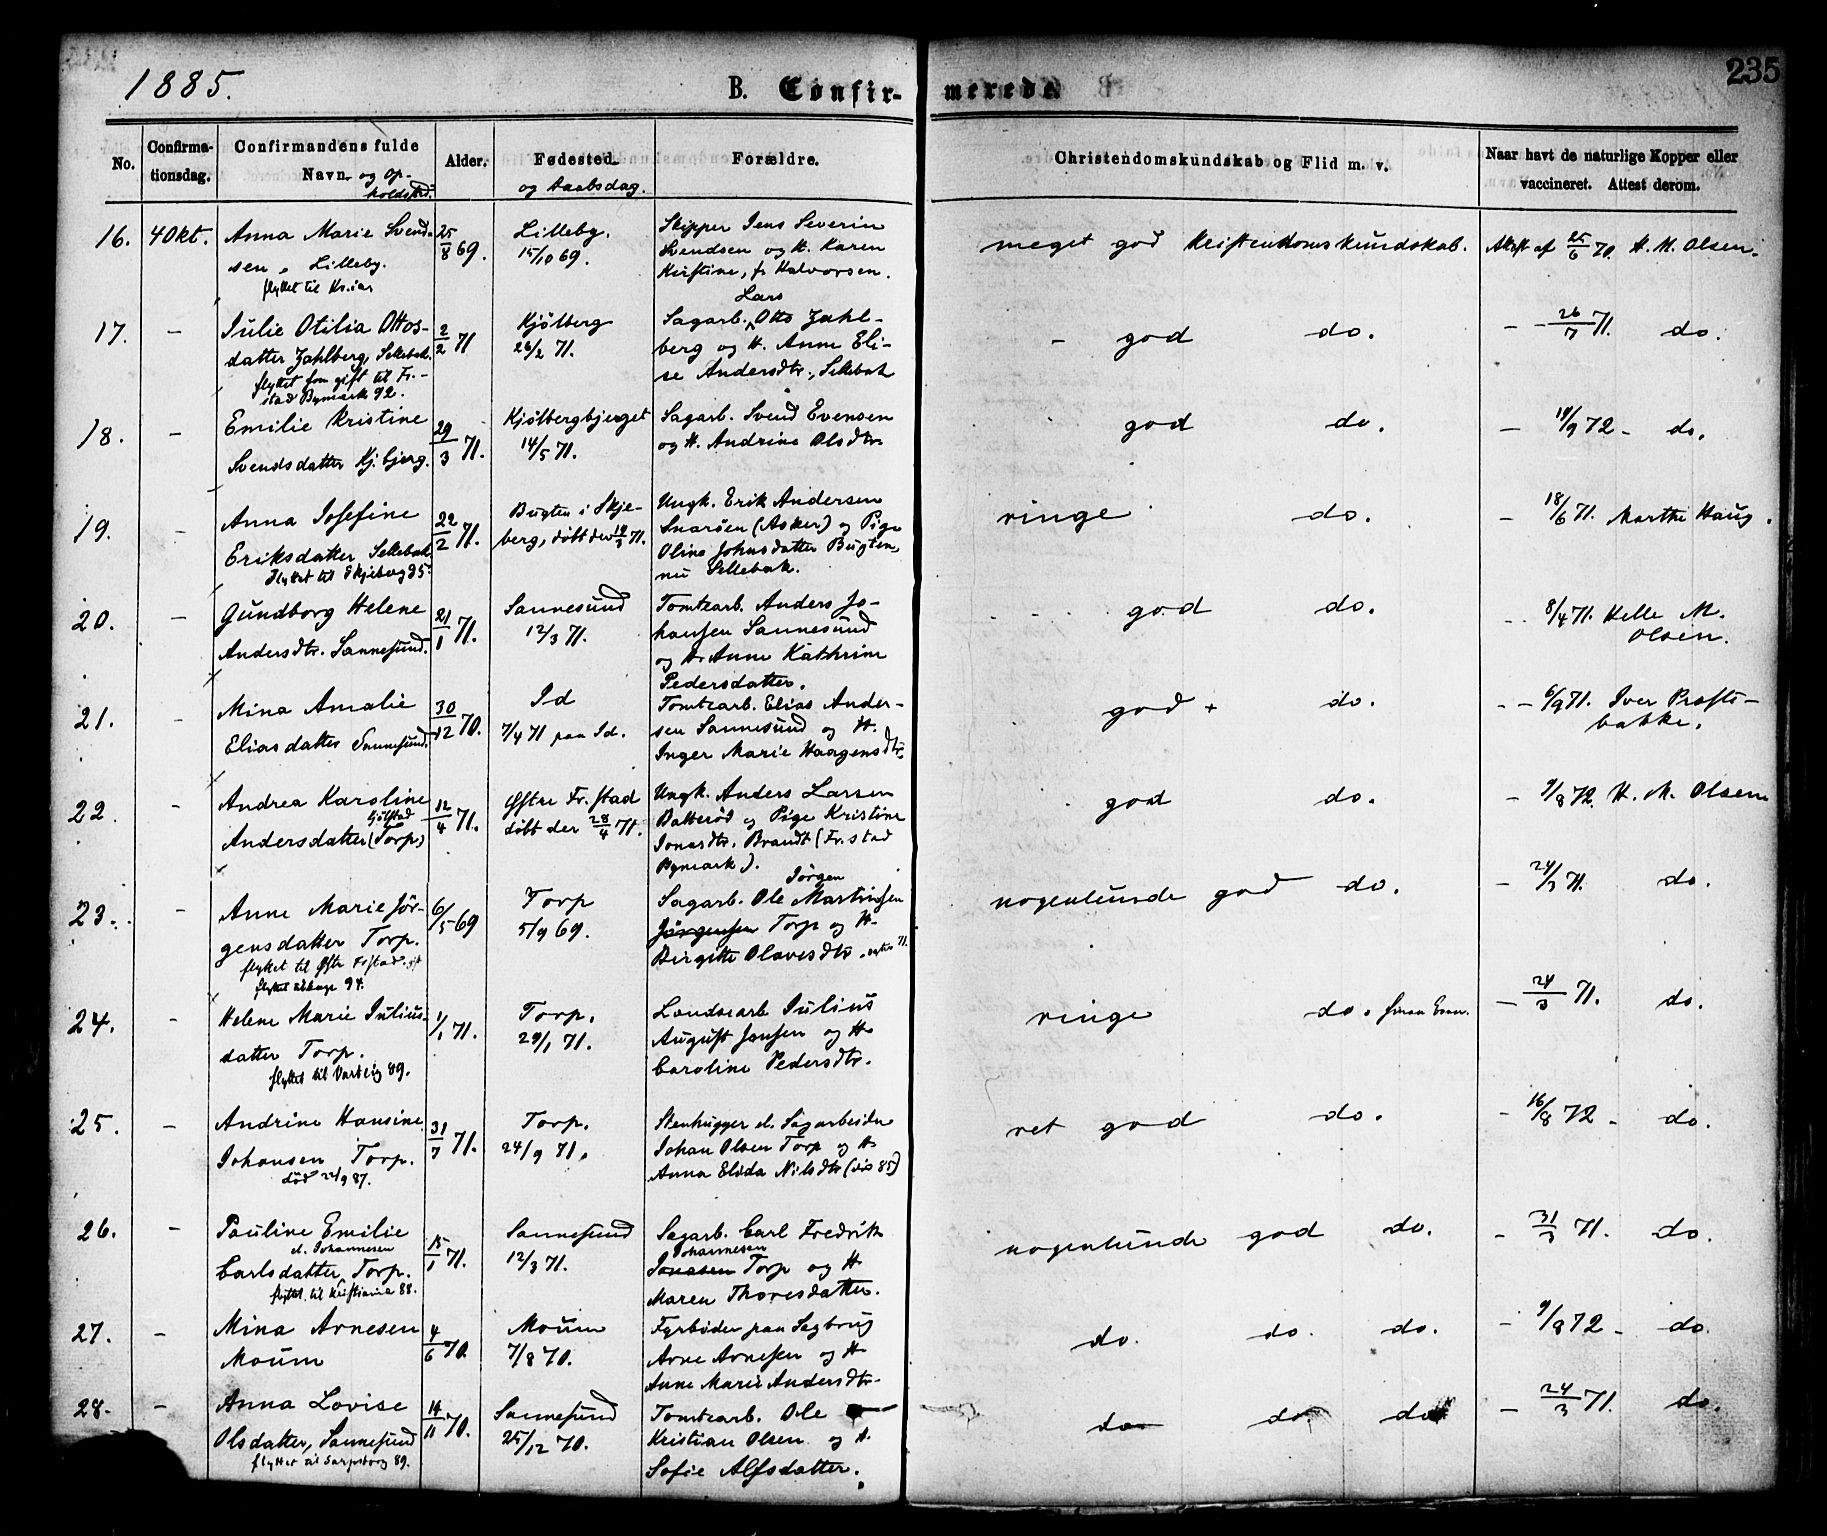 1885.
B. Confirmerede.
235
No.
Confirma-
tionsdag.
Confirmandens fulde
Navn og Op-
holdsted.
Alder.
Fødested
og Daabsdag.
Forældre.
Christendomskundskab og Flid m. v.
Naar havt de naturlige Kopper eller
vaccineret. Attest derom.
16. 4 Okt. Anna Marie Svend-
sen, Lilleby.
flyttet til Kr.ia
25/8 69.
Lilleby.
15/10 69.
Skipper Jens Severin
Svendsen og H. Karen
Kirstine, f. Halvorsen.
meget god Kristendomskundskab.
Attest af 25/6 70. H. M. Olsen.
17. – Julie Otilia Ottos-
datter Zahlberg, Sellebak.
flyttet som gift til Fr.-
stad Bymark 92.
2/2 71
Kjölberg
26/2 71.
Lars
Sagarb. Otto Zahl-
berg og H. Anne Eli-
se Andersdtr., Sellebak
– god do.
– – 26/7 71. do.
18. – Emilie Kristine
Svendsdatter Kj.bjerg.
29/3 71.
Kjølbergbjerget
14/5 71.
Sagarb. Svend Evensen
og H. Andrine Olsdtr
god do.
– 19/9 72 – do.
19. – Anna Josefine
Eriksdatter Sellebak
Flyttet til Skjeberg 95.
22/2 71.
Bugten i Skje-
berg, döbt der 19/3 71.
Ungk. Erik Andersen
Snaröen (Asker) og Pige
Oline Johnsdatter Bugten,
nu Sellebak.
ringe do.
– 18/6 71. Marthe Haug.
20. – Gundborg Helene
Andersdtr. Sannesund.
21/1 71.
Sannesund
12/3 71.
Tomtearb. Anders Jo-
hansen Sannesund
og H. Anne Kathrine
Pedersdatter.
god do.
– 8/4 71. Helle M.
Olsen.
21. – Mina Amalie
Eliasdatter Sannesund.
30/12 70.
Id
7/4 71 paa Id.
Tomtearb. Elias Ander-
sen Sannesund og H.
Inger Marie Haagensdtr.
god + do.
– – 6/9 71. Iver Præsts-
bakke.
22. – Andrea Karoline
Gjölstad
Andersdatter (Torp)
12/4 71.
Østre Fr.stad
döbt der 28/4 71.
Ungk. Anders Larsen
Batteröd og Pige Kristine
Jonasdtr. Brandt (Fr.stad
Bymark).
god do.
– 9/8 72. H. M. Olsen
23. – Anne Marie Jör-
gensdatter Torp.
flyttet til Østre Fr.stad
flyttet tilbage 94.
6/5 69
Torp
5/9 69.
Jörgen
Sagarb. Ole Martinsen
Jörgensen Torp og H.
Birgitte Olavesdtr.
nogenlunde god do.
– 24/3 71. do.
24. – Helene Marie Julius-
datter Torp.
flyttet til Varteig 89.
1/1 71.
Torp.
29/1 71.
Londsearb Julius
August Jansen og H
Caroline Pedersdtr.
ringe do.
– 24/3 71. do.
25. – Andrine Hansine
Johansen Torp.
död 22/9 87.
31/7 71.
Torp.
24/9 71.
Stenhugger el. Sagarbeider
Johan Olsen Torp og H
Anna Elida Nilsdtr
ret god do.
– 16/8 72 – do.
26. – Pauline Emilie
el. Johannesen
Carlsdatter, Torp.
flyttet til Kristiania 88.
15/1 71.
Sannesund
12/3 71.
Sagarb. Carl Fredrik
Johannesen
Jonasen Torp og H
Maren Thoresdatter.
nogenlunde god do.
– 31/3 71. do.
27. – Mina Arnesen
Moum
4/6 70.
Moum
7/8 70.
Fyrböder paa Sagbrug
Arne Arnesen og H
Anne Marie Andersdtr.
do. do. do.
– 9/8 72 – do.
28. – Anna Lovise
Olsdatter, Sannesund
flyttet til Sarpsborg 89.
14/11 70.
Sannesund
25/12 70.
Tomtearb. Ole
Kristian Olsen og H.
Sofie Alfsdatter.
do do do
– 24/3 71. do.